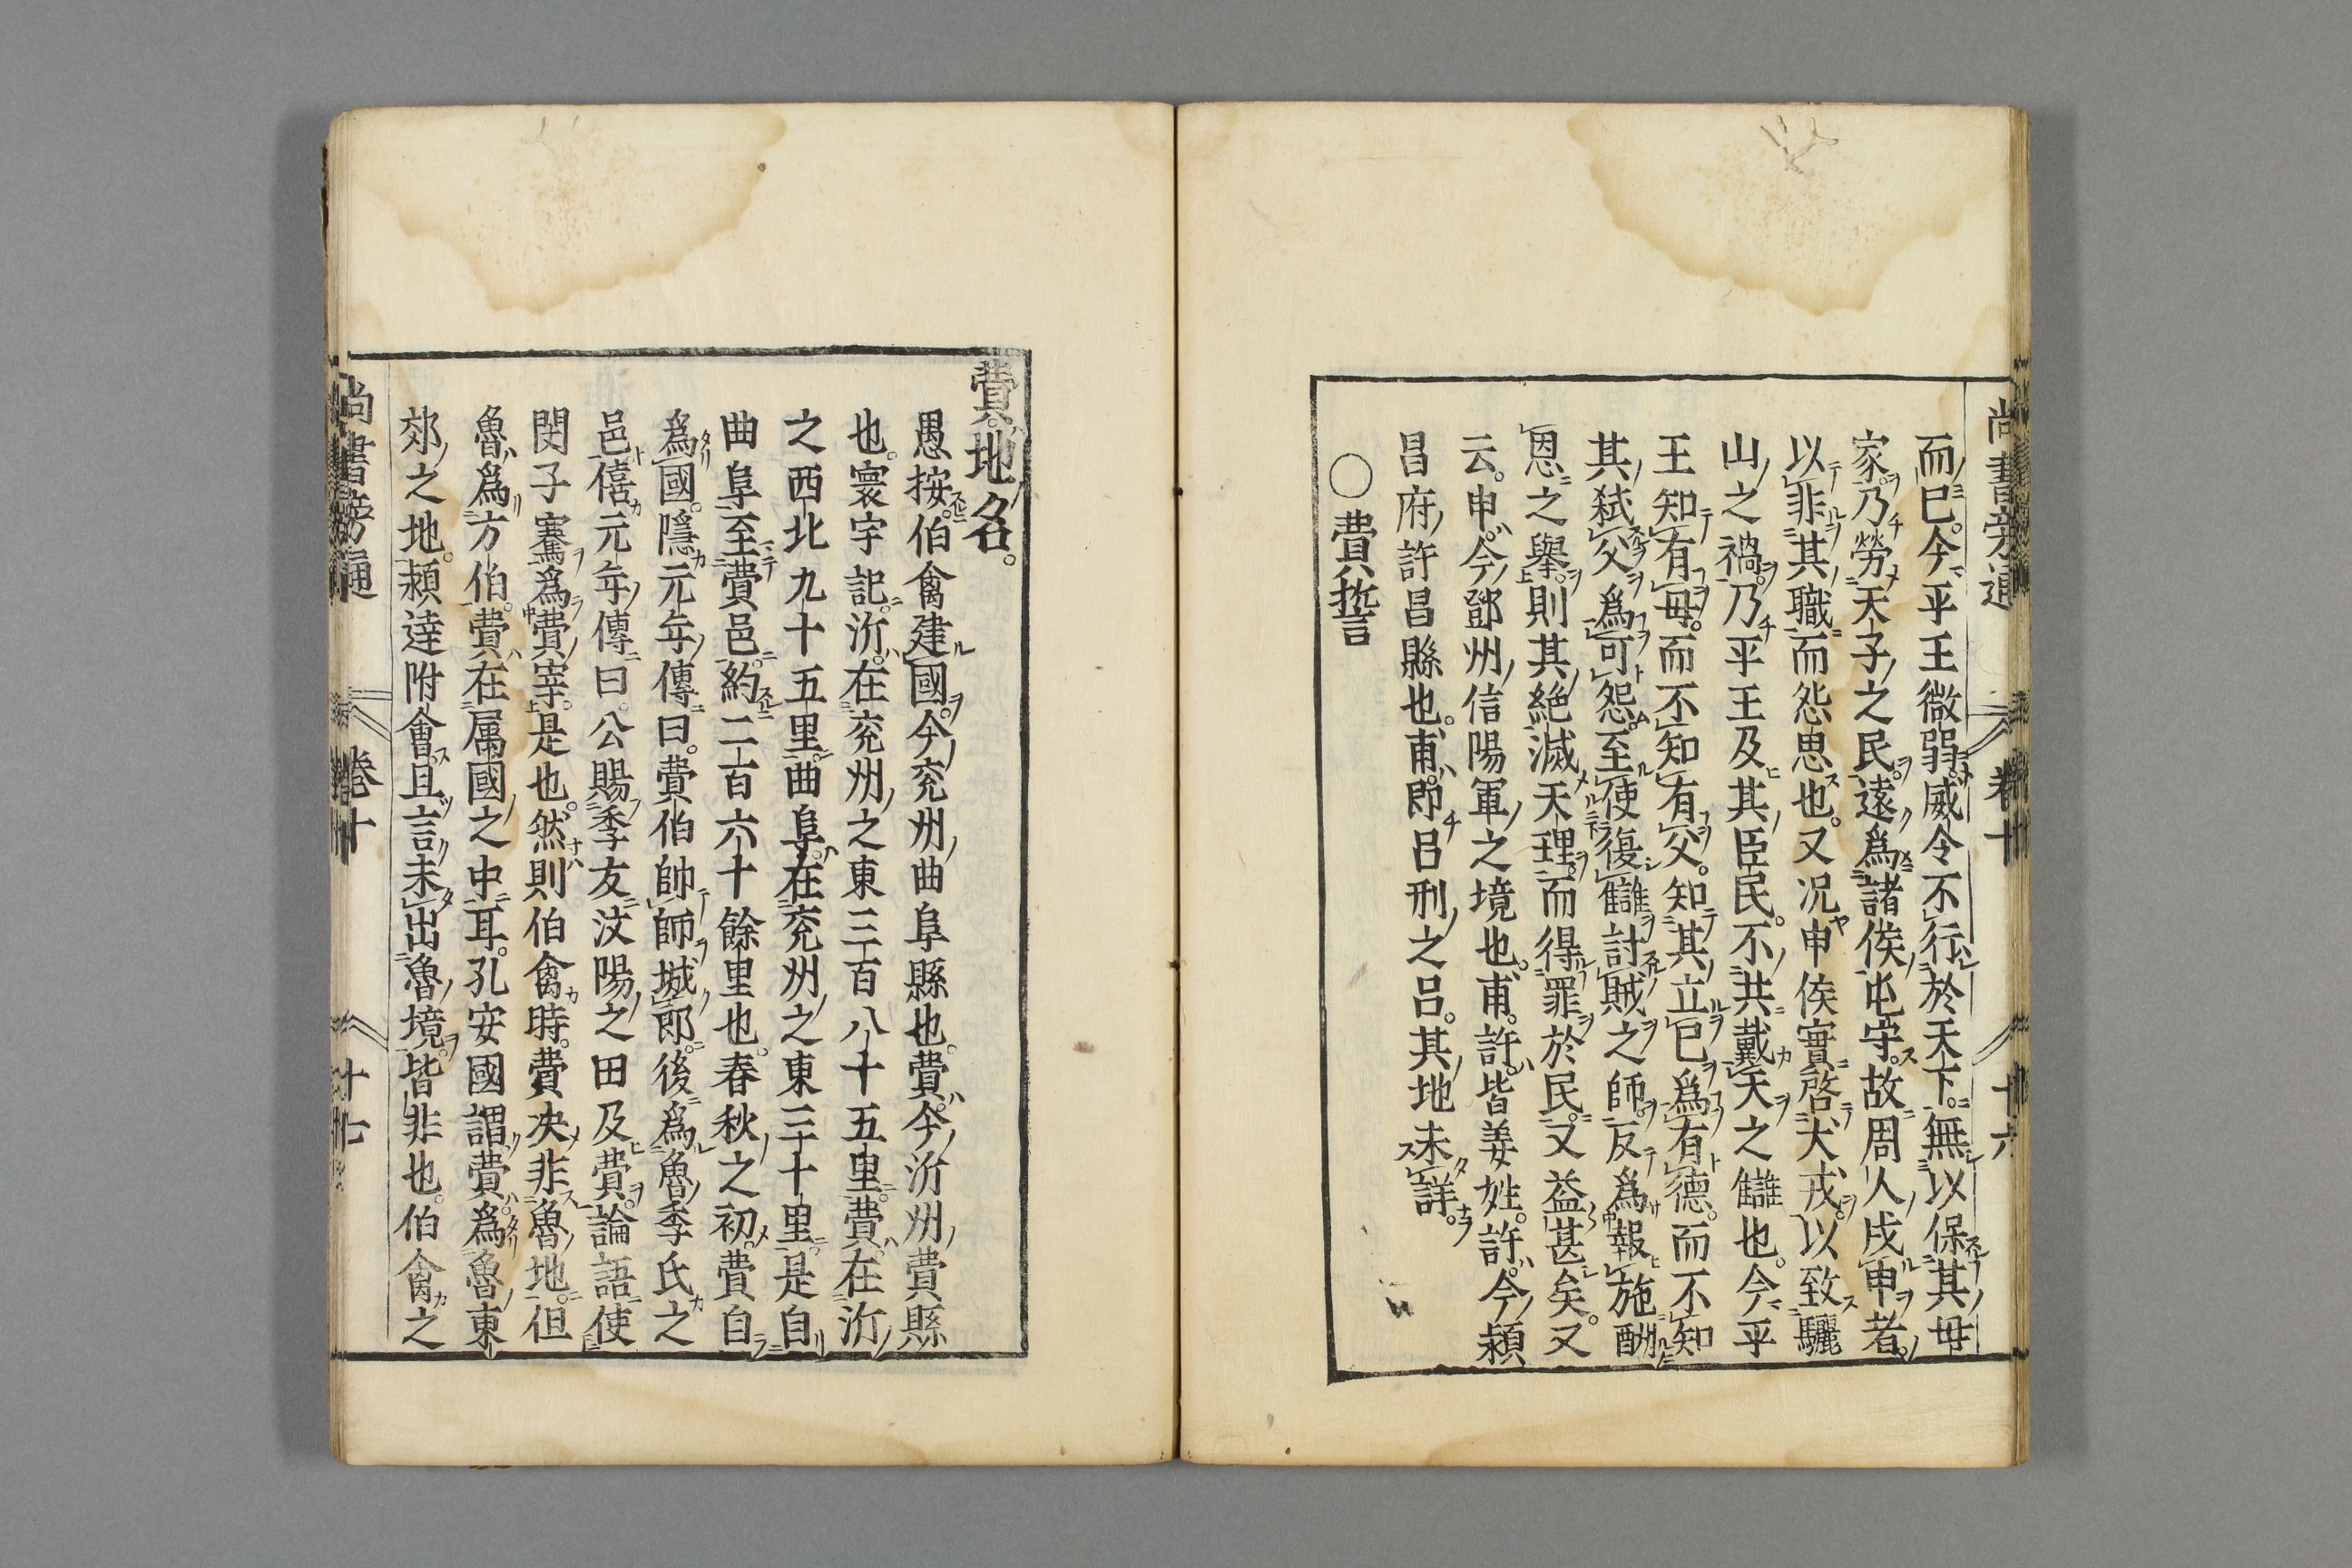 尚書旁通 卷十 十六
而已。今平王微弱。威令不行於天下。無以保其母
家。乃勞天子之民。遠爲諸侯屯守。故周人戍申者。
以非其職而怨思也。又況申侯實啓犬戎。以致驪
山之禍。乃平王及其臣民。不共戴天之讎也。今平
王知有母。而不知有父。知其立已爲有德。而不知
其弑父爲可怨。至使復讎討賊之師。反爲報施酬
恩之舉。則其絶滅天理。而得罪於民。又益甚矣。又
云。申。今鄧州信陽軍之境也。甫。許。皆姜姓。許。今潁
昌府許昌縣也。甫。即呂刑之呂。其地未詳。
○費誓
費。地名。
愚按。伯禽建國。今兖州曲阜縣也。費。今沂州費縣
也。寰宇記。沂。在兖州之東三百八十五里。費。在沂
之西北九十五里。曲阜。在兖州之東三十里。是自
曲阜至費邑。約二百六十餘里也。春秋之初。費自
爲國。隱元年傳曰。費伯帥師城郎。後爲魯季氏之
邑。僖元年傳曰。公賜季友汶陽之田及費。論語使
閔子騫爲費宰。是也。然則伯禽時。費決非魯地。但
魯爲方伯。費在属國之中耳。孔安國謂費爲魯東
郊之地。潁達附會。且言未出魯境。皆非也。伯禽之
尚書旁通 卷十 十七